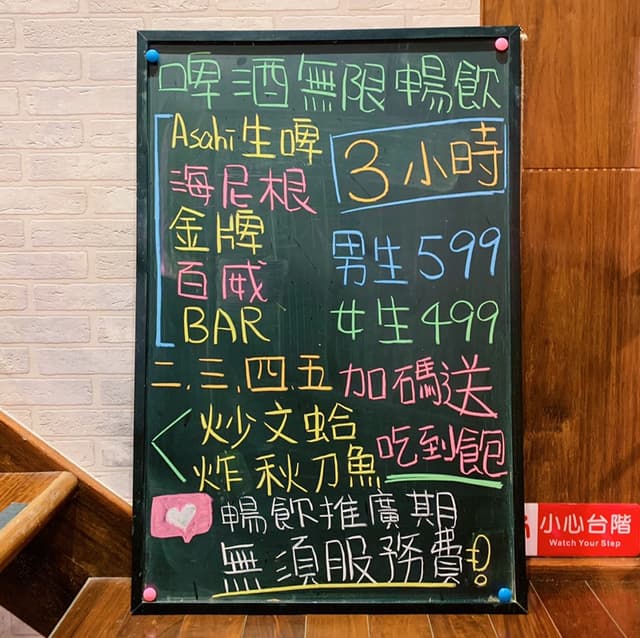 啤酒無限暢飲
Asahi生啤
海尼根
金牌
百威
BAR
3小時
男生599
女生499
二.三.四.五 加碼送
炒文蛤
炸秋刀魚
吃到飽
暢飲推廣期
無須服務費!
小心台階
Watch Your Step